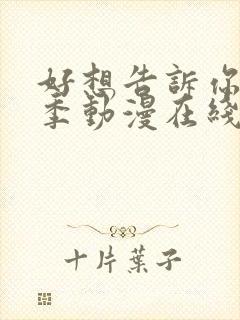 好想告訴你
季動漫在綫
十片葉子